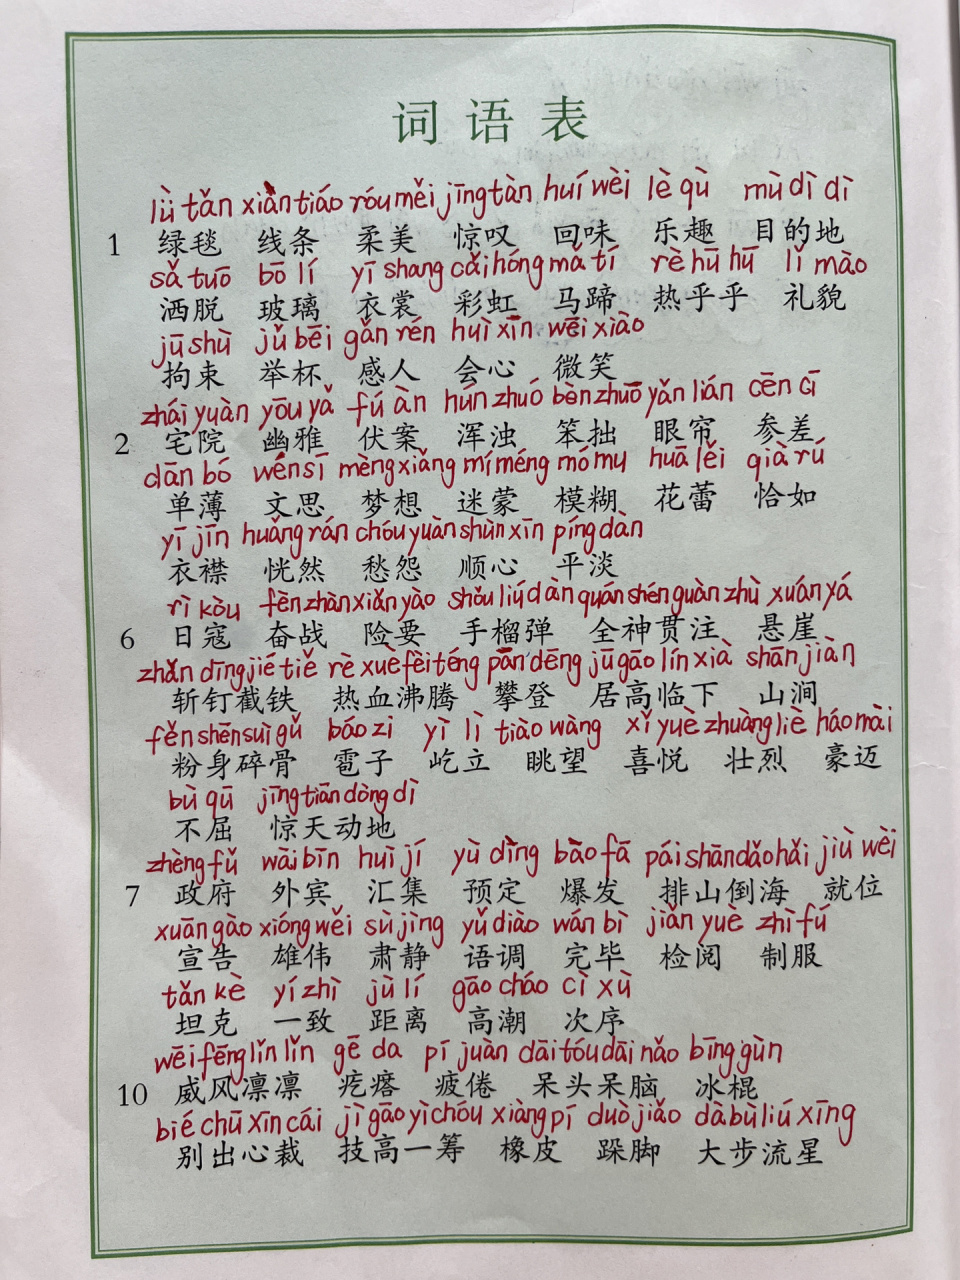 词语表
lǜ tǎn xiàn tiáo róu měi jīng tàn huí wèi lè qù mù dì dì
1 绿毯 线条 柔美 惊叹 回味 乐趣 目的地
sǎ tuō bō lí yī shang cǎi hóng mǎ tí rè hū hū lǐ mào
洒脱 玻璃 衣裳 彩虹 马蹄 热乎乎 礼貌
jū shù jǔ bēi gǎn rén huì xīn wēi xiào
拘束 举杯 感人 会心 微笑
zhái yuàn yōu yǎ fú àn hún zhuó bèn zhuō yǎn lián cēn cī
2 宅院 幽雅 伏案 浑浊 笨拙 眼帘 参差
dān bó wén sī mèng xiǎng mí méng mó mu huā lěi qià rú
单薄 文思 梦想 迷蒙 模糊 花蕾 恰如
yī jīn huǎng rán chóu yuàn shùn xīn píng dàn
衣襟 恍然 愁怨 顺心 平淡
rì kòu fèn zhàn xiǎn yào shǒu liú dàn quán shén guàn zhù xuán yá
6 日寇 奋战 险要 手榴弹 全神贯注 悬崖
zhǎn dīng jié tiě rè xuè fèi téng pān dēng jū gāo lín xià shān jiàn
斩钉截铁 热血沸腾 攀登 居高临下 山涧
fěn shēn suì gǔ báo zi yì lì tiào wàng xǐ yuè zhuàng liè háo mài
粉身碎骨 雹子 屹立 眺望 喜悦 壮烈 豪迈
bù qū jīng tiān dòng dì
不屈 惊天动地
zhèng fǔ wài bīn huì jí yù dìng bào fā pái shān dǎo hǎi jiù wèi
7 政府 外宾 汇集 预定 爆发 排山倒海 就位
xuān gào xióng wěi sù jìng yǔ diào wán bì jiǎn yuè zhì fú
宣告 雄伟 肃静 语调 完毕 检阅 制服
tǎn kè yí zhì jù lí gāo cháo cì xù
坦克 一致 距离 高潮 次序
wēi fēng lǐn lǐn gē da pí juàn dāi tóu dāi nǎo bīng gùn
10 威风凛凛 疙瘩 疲倦 呆头呆脑 冰棍
bié chū xīn cái jì gāo yì chóu xiàng pí duò jiǎo dà bù liú xīng
别出心裁 技高一筹 橡皮 跺脚 大步流星